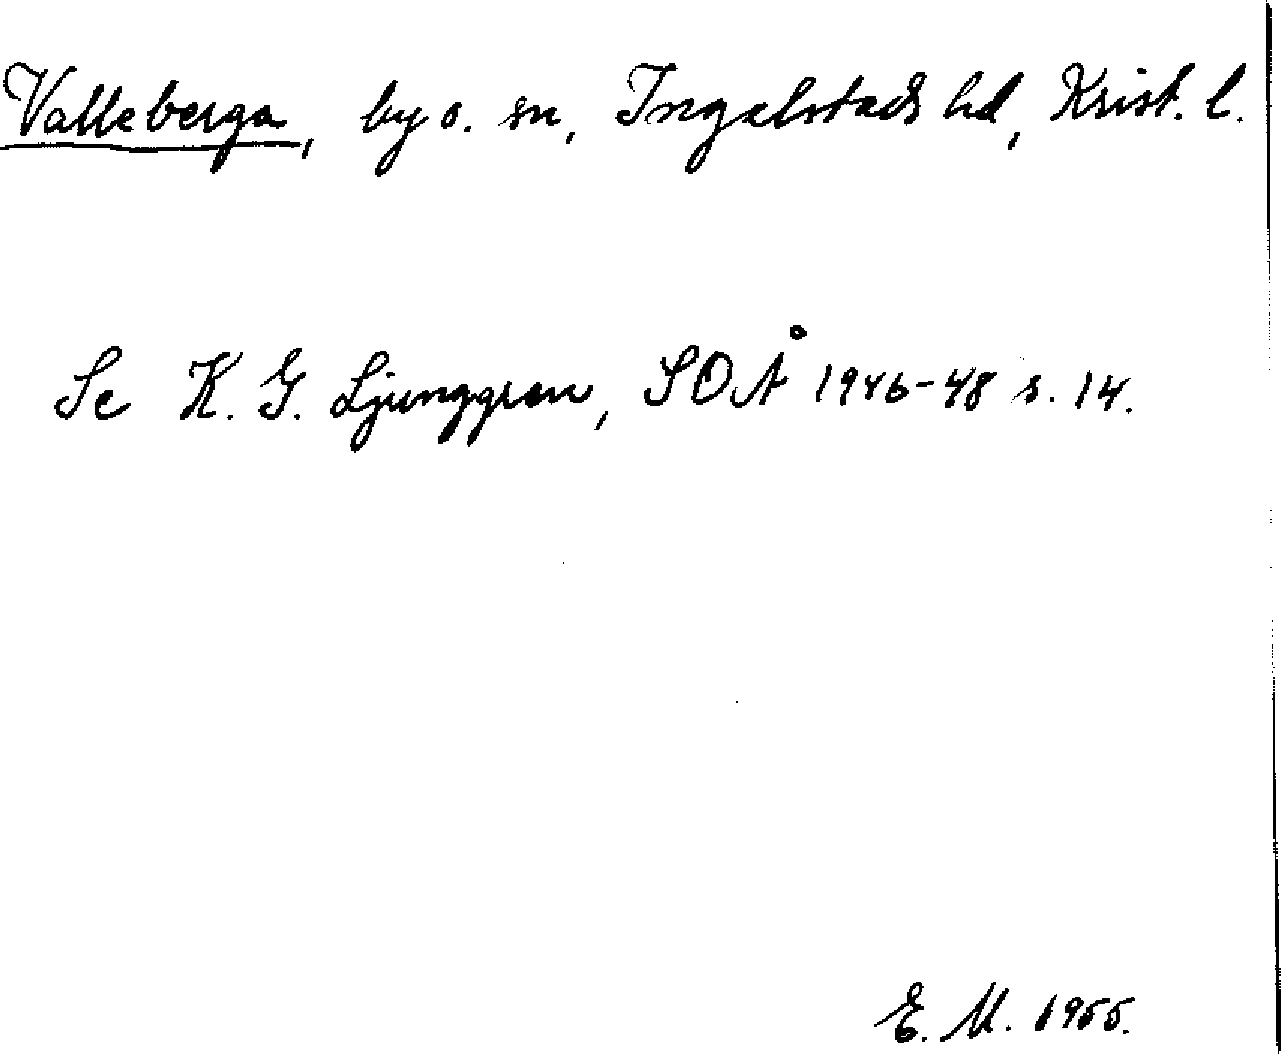 Valleberga, by o. sn, Ingelstads hd, Krist. l.
Se K. G. Ljunggren, SOÅ 1946-48 s. 14.
E. M. 1955.